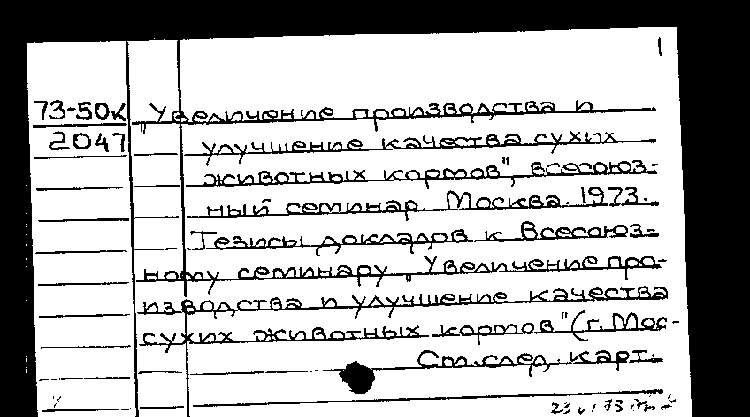 1
73-50к „Увеличение производства и
2047 улучшение качества сухих
животных кормов", всесоюз-
ный семинар. Москва. 1973.
Тезисы докладов к Всесоюз-
ному семинару „Увеличение про-
изводства и улучшение качества
сухих животных кормов" (г. Мос-
См. след. карт.